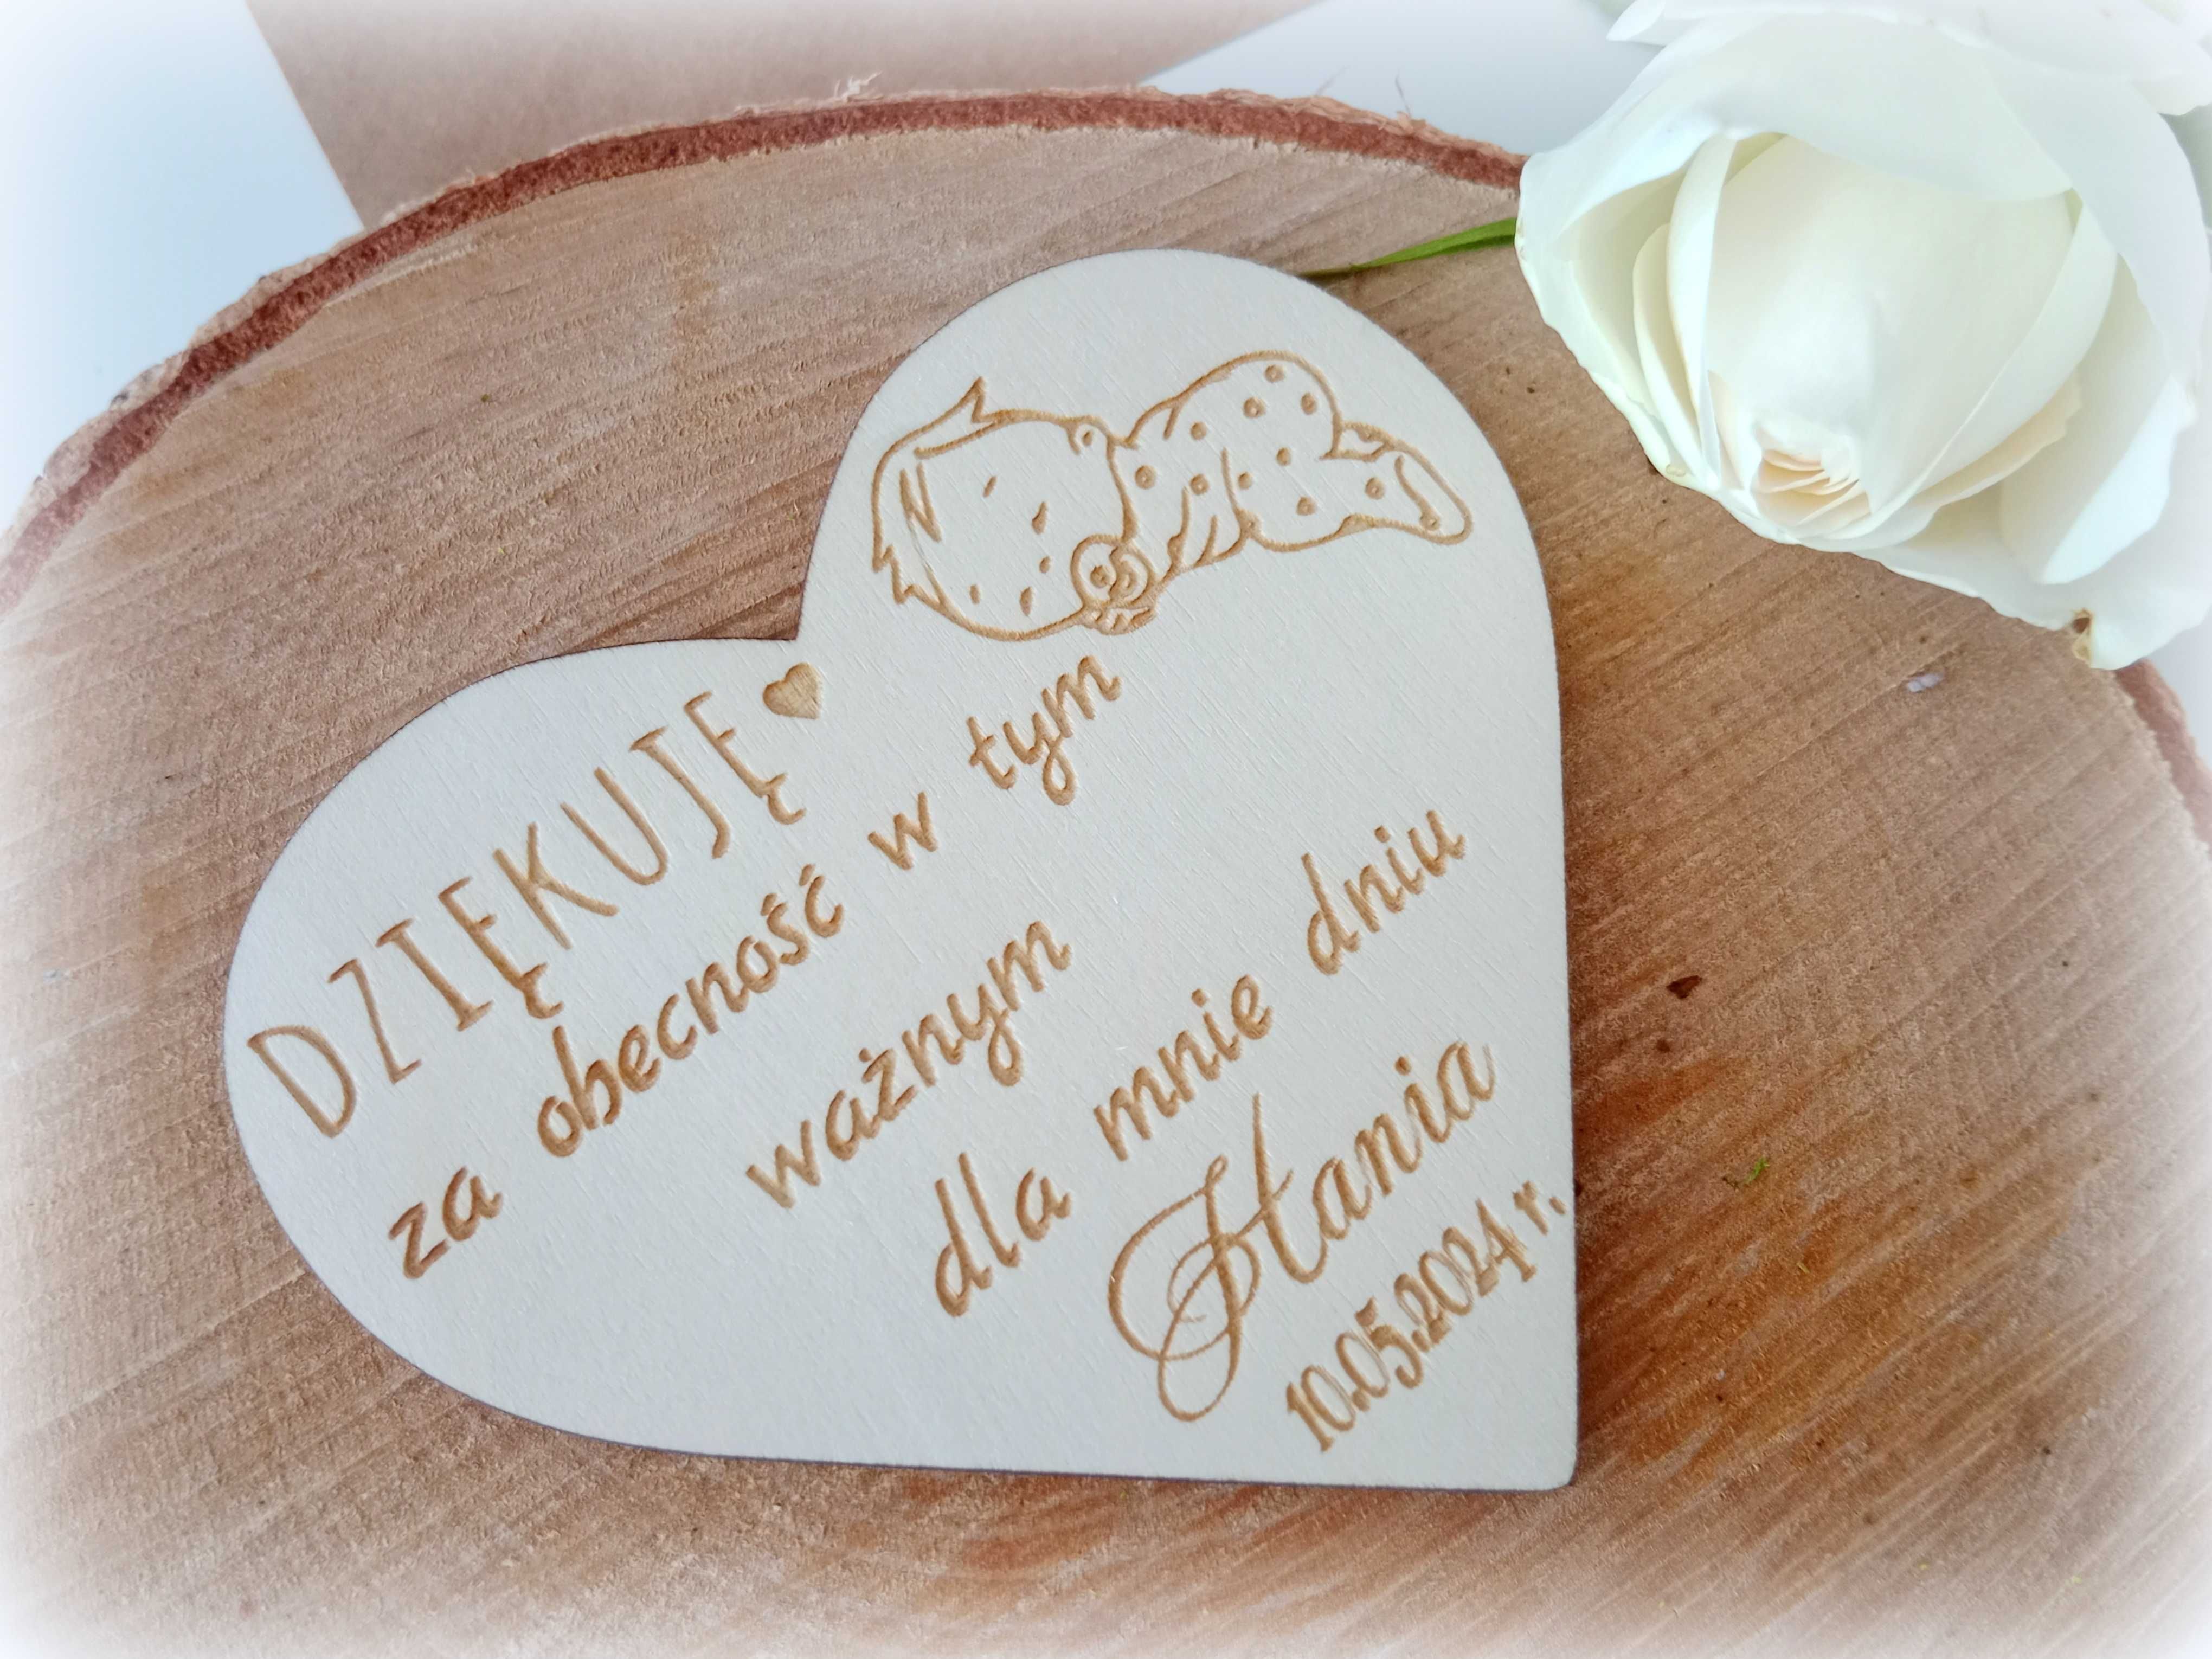 DZIĘKUJĘ
za obecność w tym
ważnym
dla mnie dniu
Hania
10.05.2024 r.